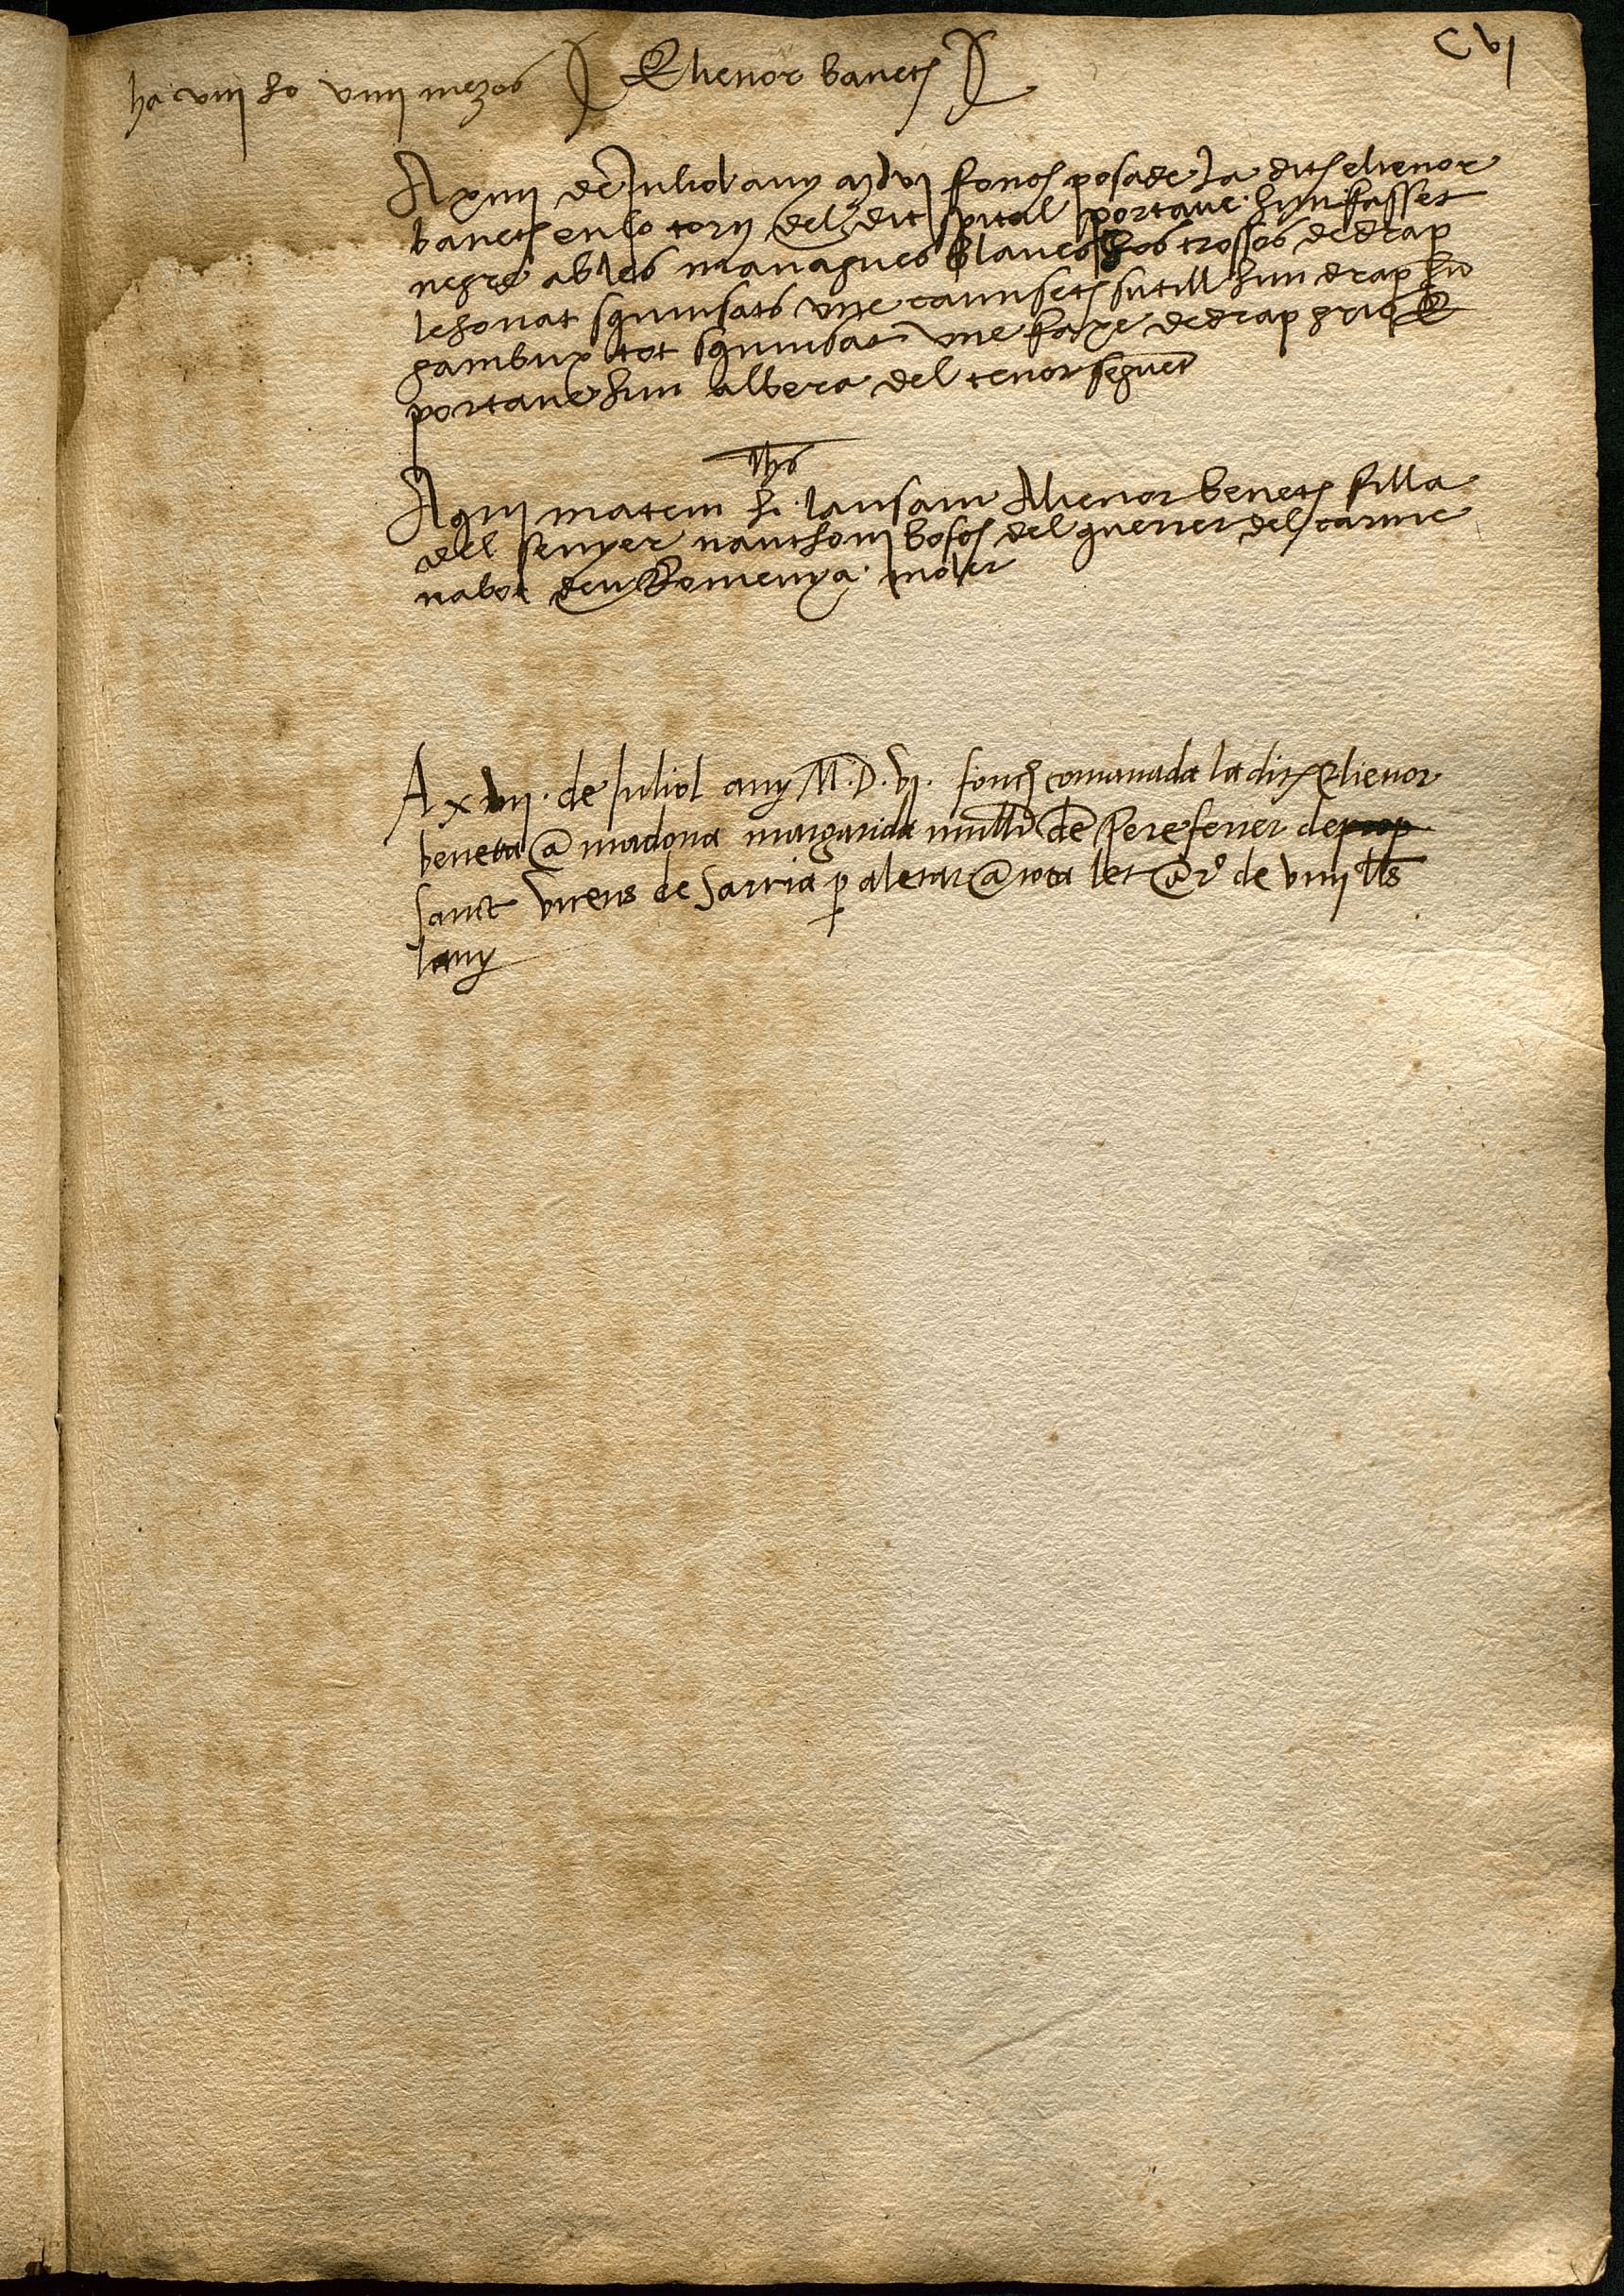 CVI
ha viii ho viiii mezos Elienor baneta
A xiiii de Juliol any MDVI fonch posade la dita elienor
baneta en lo torn del dit spital portave hun fasset
negre ab les manegues blanes dos trossos de drap
lehonat squinsats vne camiseta sutill hun drap hun
gambux tot squinsat vne faxe de drap gris E
portave hun albera del tenor seguent
Jhs
Aqui matem hi lansam Alienor beneta filla
del senyer nanthoni bosch del querrer del carme
nabot den Romenya moler
A xviii de Juliol any M.D.VI. fonch comanada la dita Elienor
beneta a madona margarida mullr de Pere ferrer de prop
sanct vicens de sarria p aletar a tota let a ro de viiii lls
lany